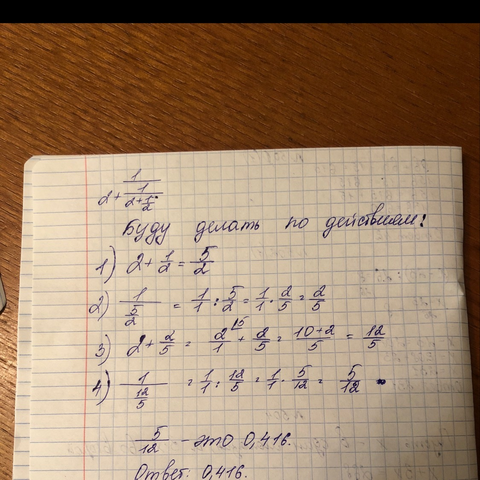 2+1/(1/(2+1/2))
Буду делать по действиям:
1) 2+1/2=5/2
2) 1/(5/2) = 1/1 : 5/2 = 1/1 · 2/5 = 2/5
3) 2+2/5 = 2/1 ⁵ + 2/5 = (10+2)/5 = 12/5
4) 1/(12/5) = 1/1 : 12/5 = 1/1 · 5/12 = 5/12
5/12 - это 0,416.
Ответ: 0,416.